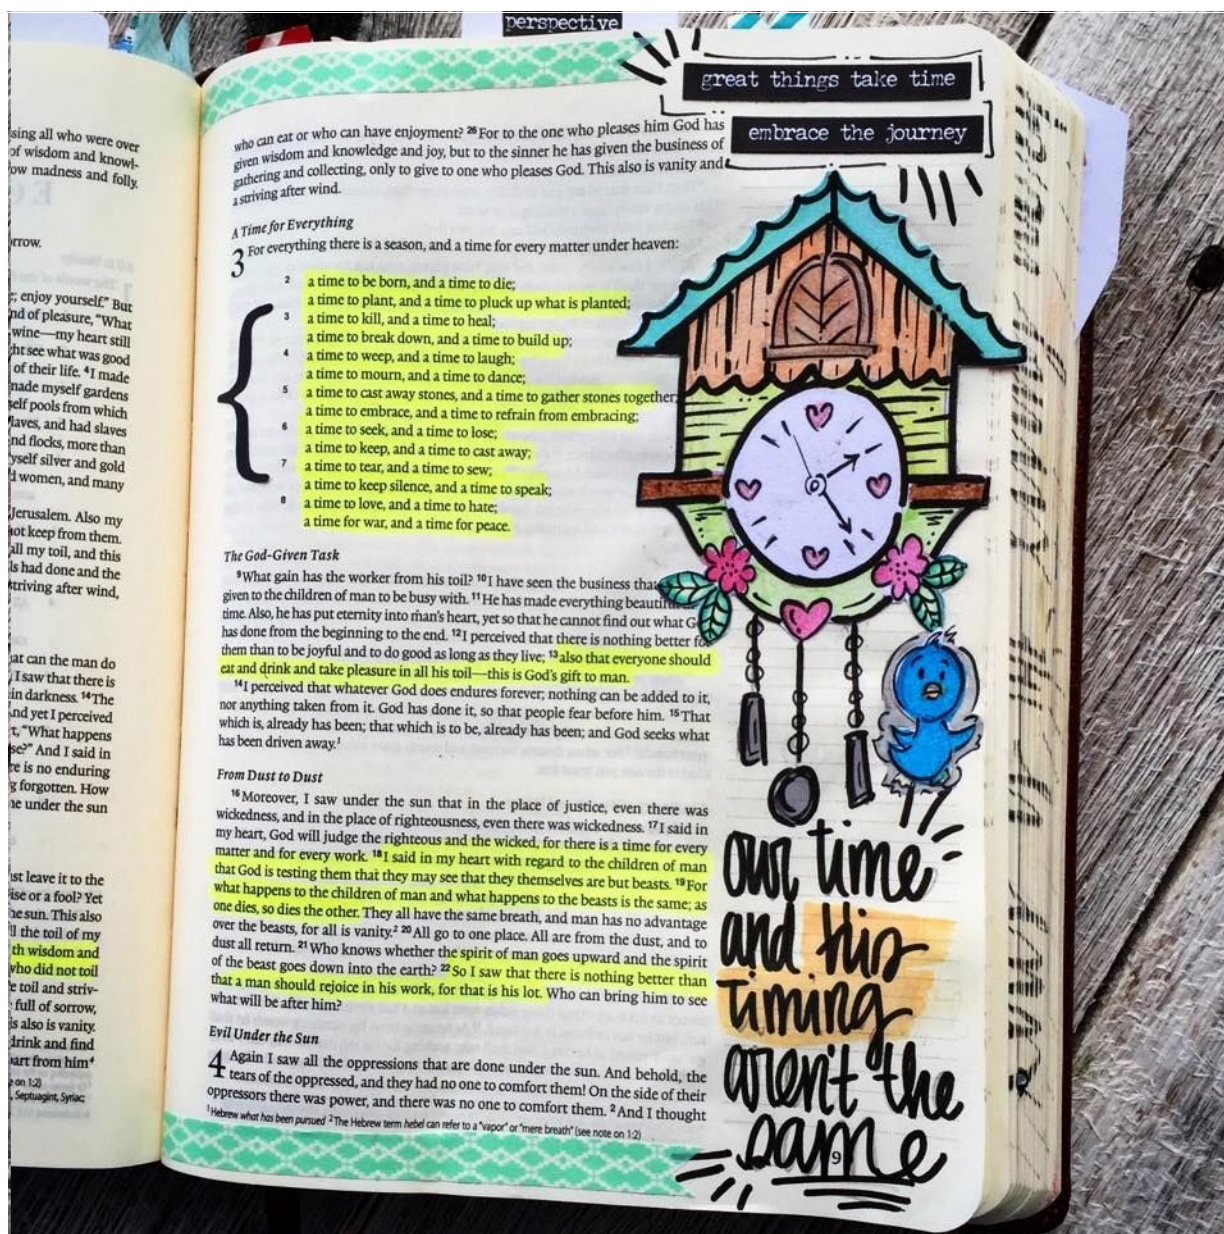 perspective
great things take time
embrace the journey
sing all who were over
of wisdom and knowl-
ow madness and folly.
rrow.
; enjoy yourself." But
nd of pleasure, "What
wine—my heart still
ht see what was good
of their life. ⁴I made
nade myself gardens
self pools from which
laves, and had slaves
nd flocks, more than
yself silver and gold
d women, and many
Jerusalem. Also my
not keep from them.
all my toil, and this
ls had done and the
triving after wind,
at can the man do
I saw that there is
in darkness. ¹⁴The
And yet I perceived
t, "What happens
se?" And I said in
re is no enduring
g forgotten. How
ne under the sun
ust leave it to the
ise or a fool? Yet
he sun. This also
ll the toil of my
th wisdom and
who did not toil
e toil and striv-
full of sorrow,
is also is vanity.
drink and find
part from him⁴
e on 1:2)
, Septuagint, Syriac;
who can eat or who can have enjoyment? ²⁶For to the one who pleases him God has
given wisdom and knowledge and joy, but to the sinner he has given the business of
gathering and collecting, only to give to one who pleases God. This also is vanity and
a striving after wind.
A Time for Everything
3 For everything there is a season, and a time for every matter under heaven:
² a time to be born, and a time to die;
a time to plant, and a time to pluck up what is planted;
³ a time to kill, and a time to heal;
a time to break down, and a time to build up;
⁴ a time to weep, and a time to laugh;
a time to mourn, and a time to dance;
⁵ a time to cast away stones, and a time to gather stones together;
a time to embrace, and a time to refrain from embracing;
⁶ a time to seek, and a time to lose;
a time to keep, and a time to cast away;
⁷ a time to tear, and a time to sew;
a time to keep silence, and a time to speak;
⁸ a time to love, and a time to hate;
a time for war, and a time for peace.
The God-Given Task
⁹What gain has the worker from his toil? ¹⁰I have seen the business that
given to the children of man to be busy with. ¹¹He has made everything beautif
time. Also, he has put eternity into man's heart, yet so that he cannot find out what G
has done from the beginning to the end. ¹²I perceived that there is nothing better fo
them than to be joyful and to do good as long as they live; ¹³also that everyone should
eat and drink and take pleasure in all his toil—this is God's gift to man.
¹⁴I perceived that whatever God does endures forever; nothing can be added to it,
nor anything taken from it. God has done it, so that people fear before him. ¹⁵That
which is, already has been; that which is to be, already has been; and God seeks what
has been driven away.¹
From Dust to Dust
¹⁶Moreover, I saw under the sun that in the place of justice, even there was
wickedness, and in the place of righteousness, even there was wickedness. ¹⁷I said in
my heart, God will judge the righteous and the wicked, for there is a time for every
matter and for every work. ¹⁸I said in my heart with regard to the children of man
that God is testing them that they may see that they themselves are but beasts. ¹⁹For
what happens to the children of man and what happens to the beasts is the same; as
one dies, so dies the other. They all have the same breath, and man has no advantage
over the beasts, for all is vanity.² ²⁰All go to one place. All are from the dust, and to
dust all return. ²¹Who knows whether the spirit of man goes upward and the spirit
of the beast goes down into the earth? ²²So I saw that there is nothing better than
that a man should rejoice in his work, for that is his lot. Who can bring him to see
what will be after him?
Evil Under the Sun
4 Again I saw all the oppressions that are done under the sun. And behold, the
tears of the oppressed, and they had no one to comfort them! On the side of their
oppressors there was power, and there was no one to comfort them. ²And I thought
¹Hebrew what has been pursued ²The Hebrew term hebel can refer to a "vapor" or "mere breath" (see note on 1:2)
our time
and His
timing
aren't the
same
9